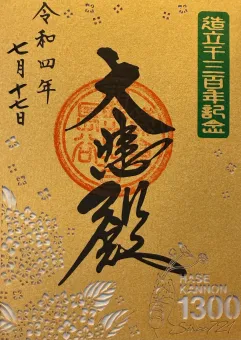 造立千三百年記念
大悲殿
令和四年
七月十七日
HASE
KANNON
1300
Since 721